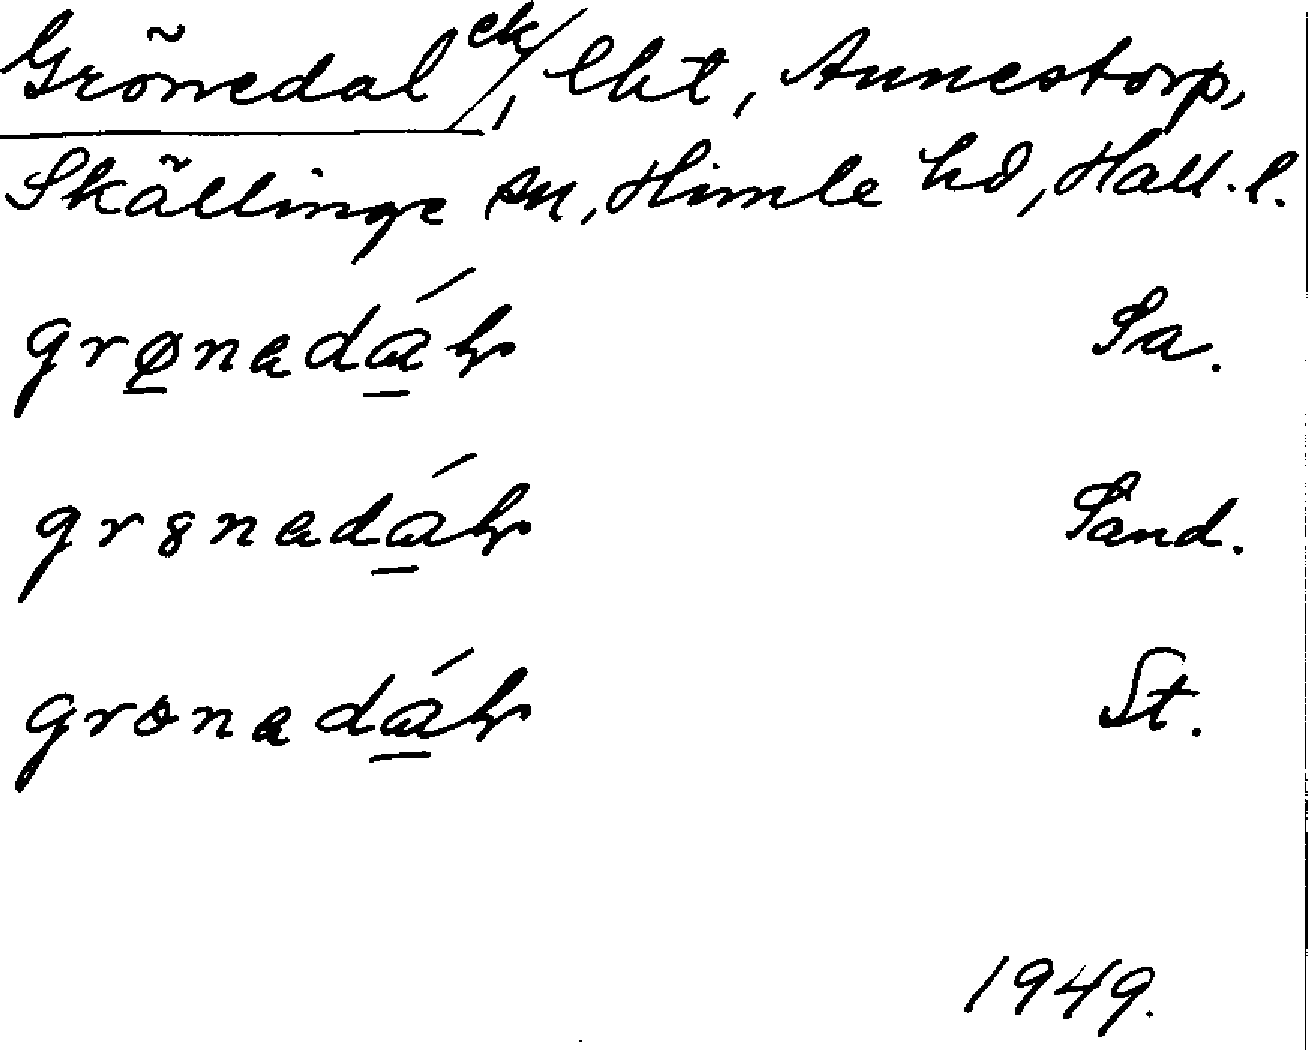 Grönedal ek/, lht, Annestorp,
Skällinge sn, Himle hd, Hall. l.
grø̲nadá̲l Sa.
gr8nadá̲l Sand.
grɵnadá̲l St.
1949.